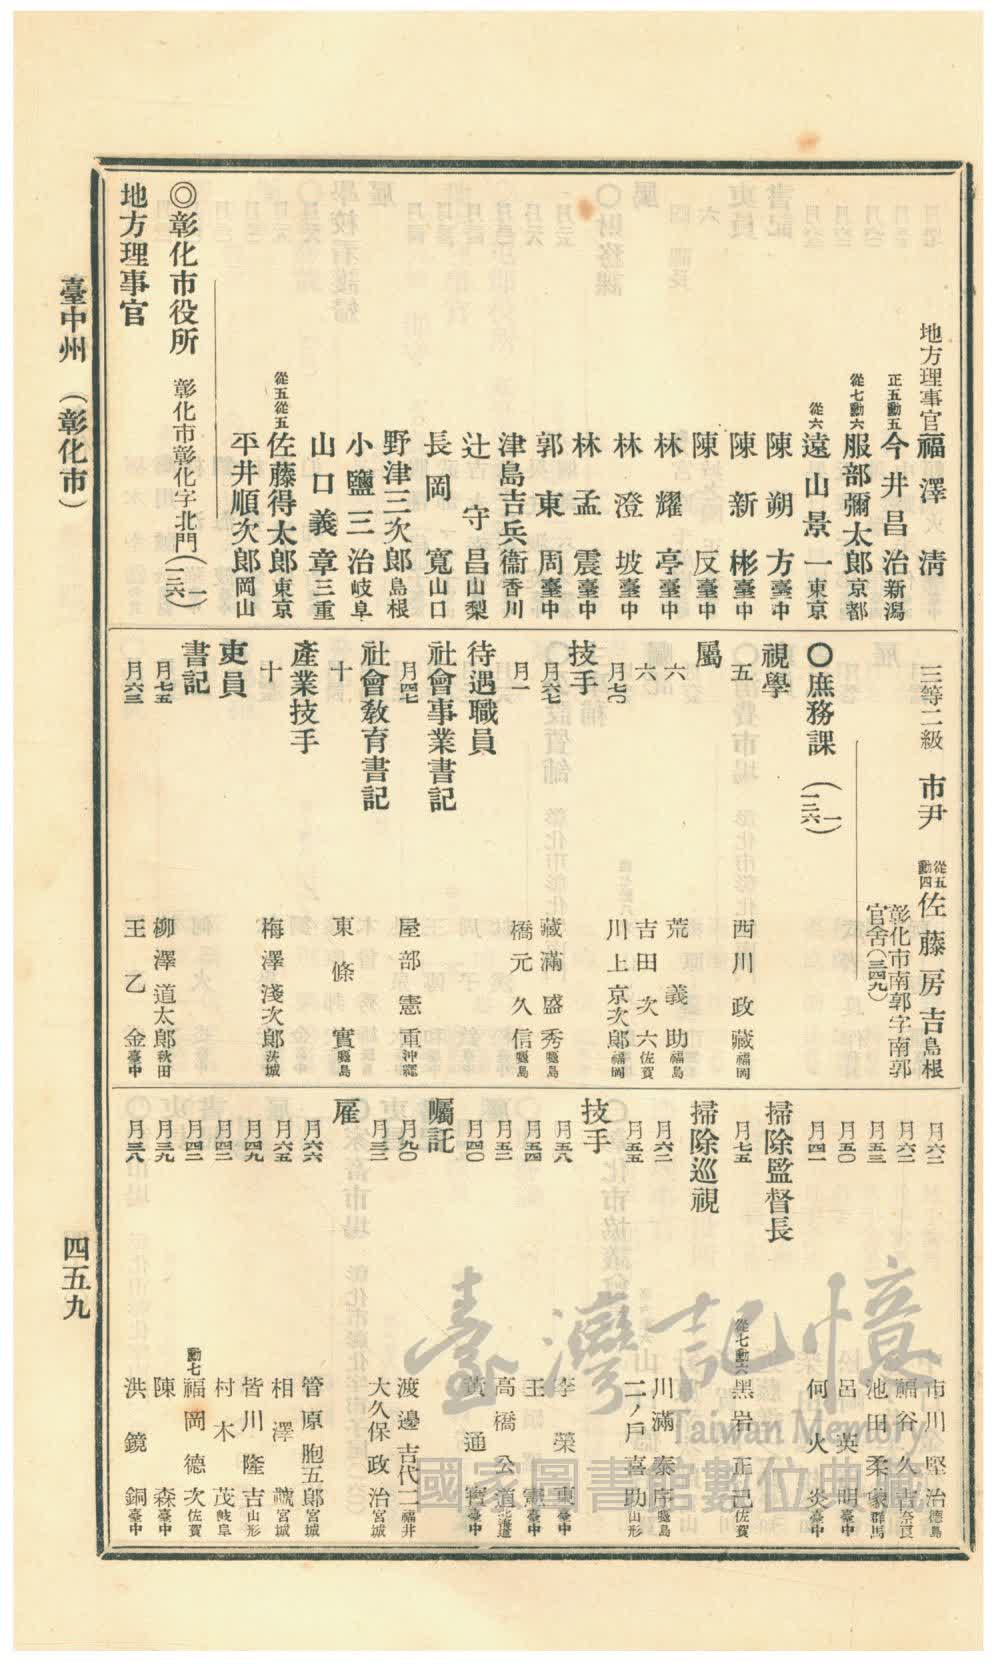 臺中州 (彰化市)
四五九
地方理事官 福澤清
正五勳五 今井昌治 新潟
從七勳六 服部彌太郎 京都
從六 遠山景一 東京
陳朔方 臺中
陳新彬 臺中
陳反 臺中
林耀亭 臺中
林澄坡 臺中
林孟震 臺中
郭東周 臺中
津島吉兵衞 香川
辻守昌 山梨
長岡寬 山口
野津三次郎 島根
小鹽三治 岐阜
山口義章 三重
從五從五 佐藤得太郎 東京
平井順次郎 岡山
◎彰化市役所 彰化市彰化字北門(一二六一)
地方理事官
三等二級 市尹 從五勳四 佐藤房吉 島根
彰化市南郭字南郭
官舍(三四九)
○庶務課 (一二六一)
視學
五 西川政藏 福岡
屬
六 荒義助 福島
六 吉田次六 佐賀
月七〇 川上京次郎 福岡
技手
月六七 藏滿盛秀 鹿兒島
月一 橋元久信 鹿兒島
待遇職員
社會事業書記
月四七 屋部憲重 沖繩
社會敎育書記
十 東條實 鹿兒島
產業技手
十 梅澤淺次郎 茨城
吏員
書記
月七五 柳澤道太郎 秋田
月六三 王乙金 臺中
月六二 市川堅治 德島
月六二 福谷久吉 奈良
月五三 池田柔象 群馬
月五〇 呂英明 臺中
月四一 何火炎 臺中
掃除監督長
月七五 從七勳六 黑岩正己 佐賀
掃除巡視
月六二 川滿泰序
月五五 二ノ戶喜助 山形
技手
月五八 李榮東 臺中
月五四 王憲 臺中
月五二 高橋公道 北海道
月四〇 黃通寶 臺中
囑託
月九〇 渡邊吉代二 福井
月三二 大久保政治 宮城
雇
月六六 管原胞五郎 宮城
月六五 相澤 宮城
月四九 皆川隆吉 山形
月四二 村木茂 岐阜
月四二 勳七 福岡德次 佐賀
月三九 陳森 臺中
月三八 洪鏡銅 臺中
臺灣記憶
Taiwan Memory
國家圖書館數位典藏